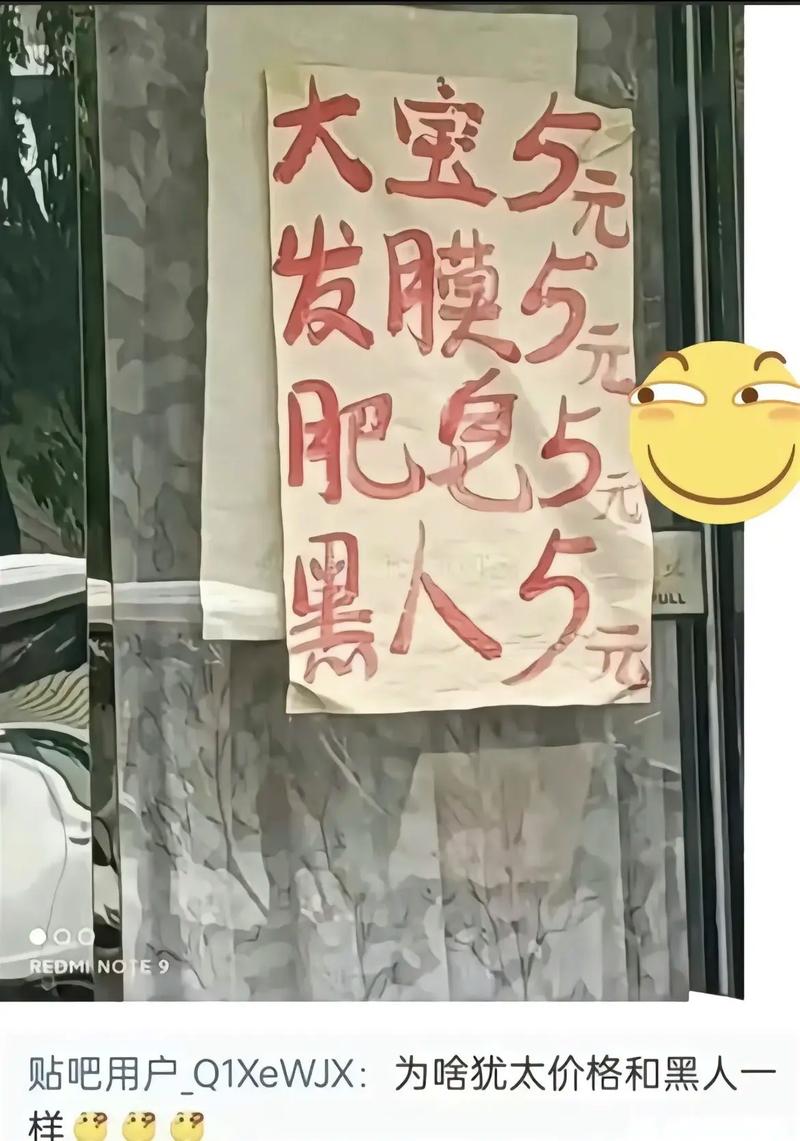 大宝5元
发膜5元
肥皂5元
黑人5元
PULL
REDMI NOTE 9
贴吧用户_Q1XeWJX：为啥犹太价格和黑人一
样